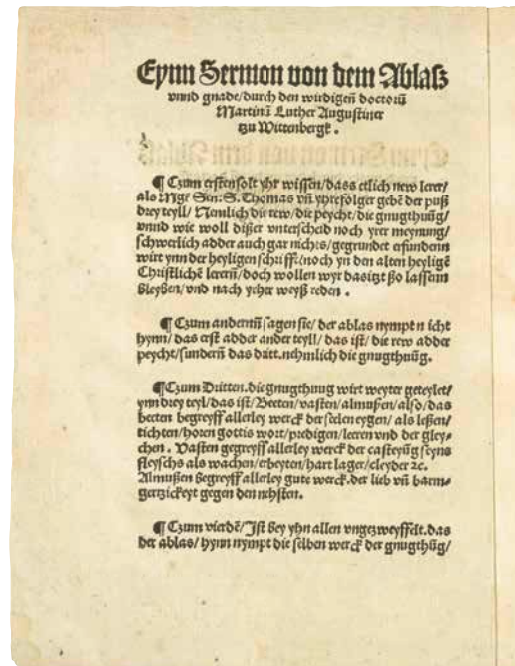 Eynn Sermon von dem Ablasz
vnnd gnade/durch den wirdigen̄ doctorū
Martinū Luther Augustiner
tzu Wittenbergk .
¶ Czum ersten solt yhr wissen/dass etlich new lerer/
als Mgr Sen: S. Thomas vn̄ yhre folger gebē der pusz
drey teyll/ Nemlich die rew/die peycht/die gnugthuūg/
vnnd wie woll diszer vnterscheid noch yrer meynung/
schwerlich adder auch gar nichts/gegrundet erfundenn
wirt ynn der heyligen schrifft/noch yn den alten heyligē
Christlichē lerern̄/doch wollen wyr das itzt szo lassenn
bleyben/vnd nach yrher weysz reden .
¶ Czum andernn̄ sagen sie/ der ablas nympt n icht
hynn/ das erst adder ander teyll/ das ist/ die rew adder
peycht/sundern̄ das dritt. nehmlich die gnugthuūg.
¶ Czum Dritten. die gnugthuug wirt weyter geteylet/
ynn drey teyl/das ist/Beeten/vasten/almuszen/also/das
beeten begreyff allerley werck der seelen eygen/ als leszen/
tichten/horen gottis wort/predigen/leeren vnd der gley-
chen . Vasten gegreyff allerley werck der casteyūg seyns
fleyschs als wachen/erbeyten/hart lager/cleyder ꝛc.
Almuszen begreyff allerley gute werck. der lieb vn̄ barm-
hertzickeyt gegen den nehsten.
¶ Czum vierdē/Ist bey yhn allen vngezweyffelt. das
der ablas/ hynn nympt die selben werck der gnugthūg/